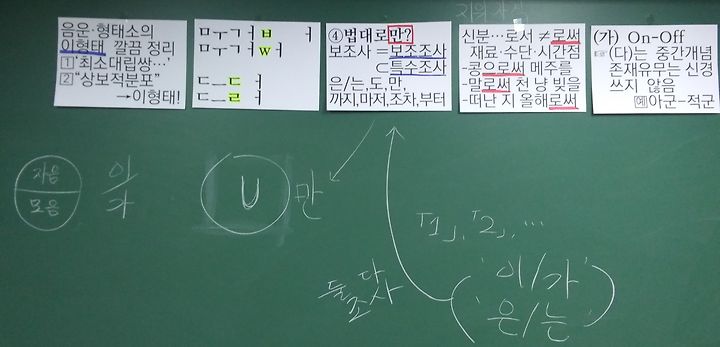 음운·형태소의
이형태 깔끔 정리
1 '최소대립쌍…'
2 "상보적분포"
→이형태!
ㅁㅜㄱㅓㅂ ㅓ
ㅁㅜㄱㅓwㅓ
ㄷㅡㄷ ㅓ
ㄷㅡㄹ ㅓ
④법대로만?
보조사 =보조조사
⊂특수조사
은/는,도,만,
까지,마저,조차,부터
신분…로서 ≠로써
재료·수단·시간점
-콩으로써 메주를
-말로써 천 냥 빚을
-떠난 지 올해로써
(가) On-Off
☞(다)는 중간개념
존재유무는 신경
쓰지 않음
예아군-적군
자음
모음
이
가
U
만
「1」, 「2」, …
둘 다
조사
'이/가'
'은/는'